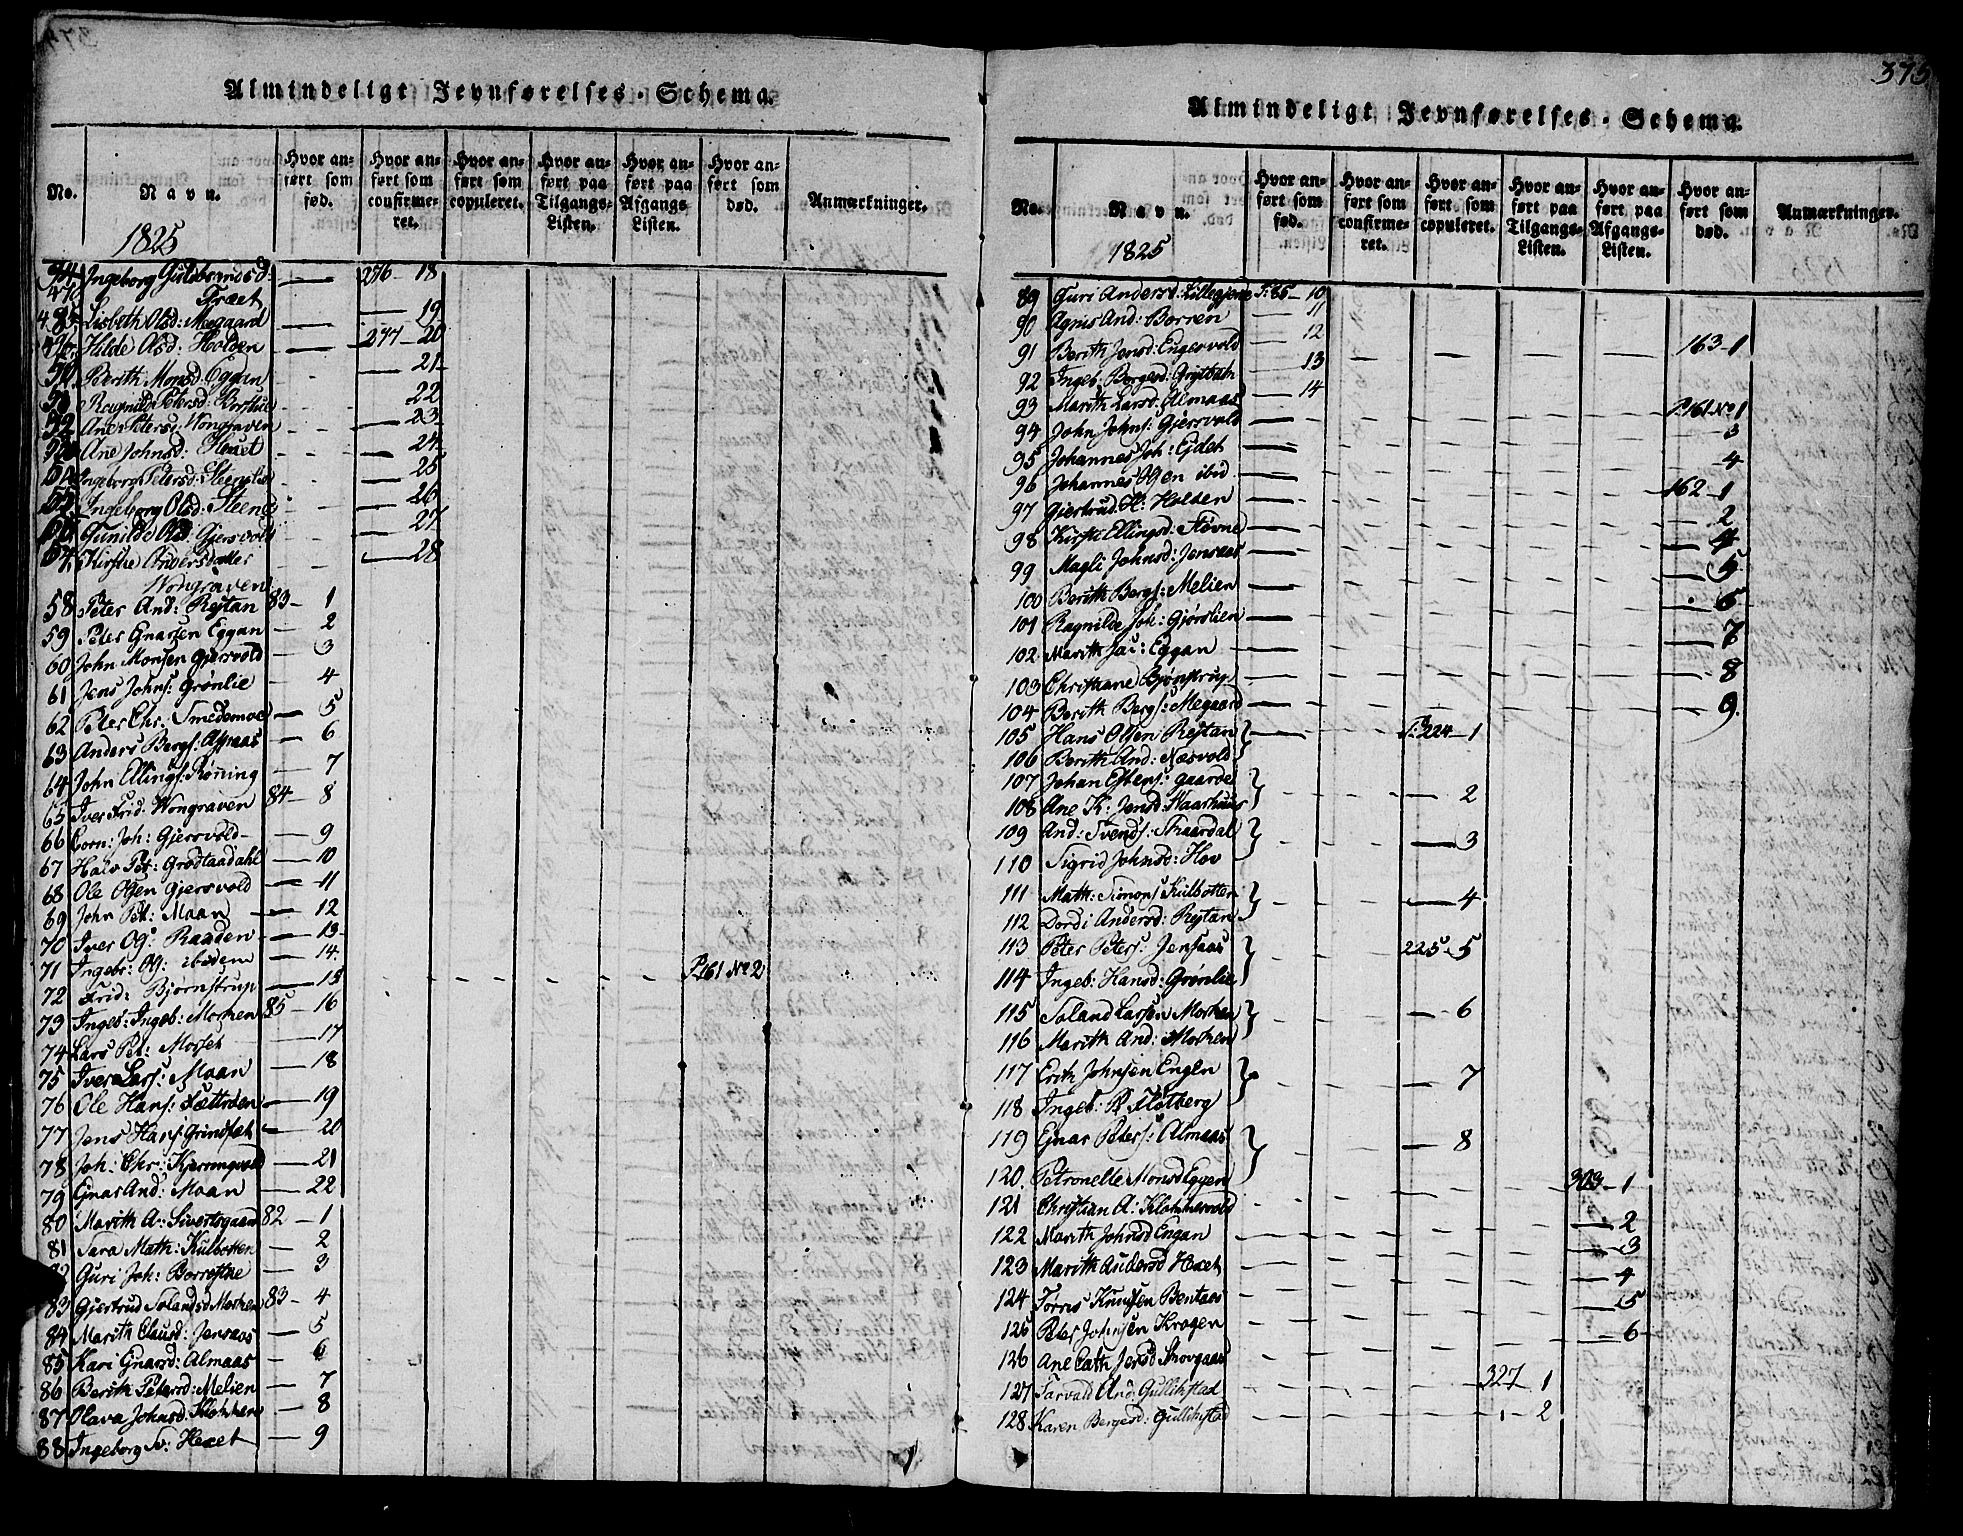 375
Almindeligt Jevnførelses-Schema.
No.
Navn.
Hvor anført som fød.
Hvor anført som confirmeret.
Hvor anført som copuleret.
Hvor anført paa Tilgangs-Listen.
Hvor anført paa Afgangs Listen.
Hvor anført som død.
Anmærkninger.
1825
Ingeborg Guldbrandsd: — 276 – 18
Træet
Lisbeth Olsd: Megaard — — 19
Hilde Olsd: Holden — 277 – 20
Berith Monsd: Eggan — 21
Ragnild Petersd: — 22
Ane Petersd: Wongraven — 23
Ane Johnsd: Hexet — 24
Ingeborg Petersd: — 25
Ingeborg Olsd: Steene — 26
Gunild Olsd: Gjersvold — 27
Kirstie Andersdatter — 28
Wongraven
58 Peter And: Rejtan 83 – 1
59 Peter Enarsen Eggan — 2
60 John Monsen Gjersvold — 3
61 Jens Johns: Grønlie — 4
62 Peter Chr: Smedemoe — 5
63 Anders Bergs: Aspaas — 6
64 John Ellings: Røning — 7
65 Iver Frid: Wongraven 84 – 8
66 Corn: Joh: Gjersvold — 9
67 Halv Pet: Grødtaadahl — 10
68 Ole Olsen Gjersvold — 11
69 John Pet: Maan — 12
70 Iver Ol: Raaden — 13
71 Ingebr: Ol: ibidem — 14
72 Frid: Bjørnstrup — 15 P. 161 No 2
73 Ingeb: Ingeb: Moshen 85 – 16
74 Lars Pet: Moset — 17
75 Iver Lars: Maan — 18
76 Ole Hans: — 19
77 Jens Hans: Grindsæt — 20
78 Joh: Chr: Kjerringvold — 21
79 Enar And: Maan — 22
80 Marith A: Sivertsgaard 82 – 1
81 Sara Math: Kulbotten — 2
82 Guri Joh: Borrestne — 3
83 Gjertrud Solandsd Moshen 83 – 4
84 Marith Clausd: Jensaas — 5
85 Kari Enarsd: Almaas — 6
86 Berith Petersd: Melien — 7
87 Olava Johnsd: Klokken — 8
88 Ingeborg Sv: Hexet — 9
Almindeligt Jevnførelses-Schema.
No.
Navn.
Hvor anført som fød.
Hvor anført som confirmeret.
Hvor anført som copuleret.
Hvor anført paa Tilgangs-Listen.
Hvor anført paa Afgangs-Listen.
Hvor anført som død.
Anmærkninger.
1825
89 Guri Andersd: P: 85 – 10
90 Agnis And: Borren — 11
91 Berith Jonsd: Engesvold — 12 163 – 1
92 Ingeb: Borgesd: — 13
93 Marith Larsd: Almaas — 14
94 John Johns: Gjersvold — P. 161 No 1
95 Johannes Joh: Ejdet — 3
96 Johannes Olsen ibid. — 4
97 Gjertrud H: Holden — 162 – 1
98 Kirsti Ellingsd: Støvne — 2
99 Magli Johnsd: Jensaas — 4
100 Berith Bergs: Melien — 5
101 Ragnilde Joh: Gjøslien — 6
102 Marith Jac: Eggan — 7
103 Christiane Bjønstrup — 8
104 Berith Bergs: Megaard — 9.
105 Hans Olsen Rejtan } — P: 224 – 1
106 Berith And: Næsvold }
107 Johan Estens: Gaarde }
108 Ane K: Jensd: Haarhuus } — 2
109 And: Svends: Skaardal } — 3
110 Sigrid Johnsd: Hov
111 Math: Simons: Kulbotten } — 4
112 Dordi Andersd: Rejtan
113 Peter Peters: Jensaas } 225 – 5
114 Ingeb: Hansd: Grønlie
115 Soland Larsen Moshen } — 6
116 Marith And: Moshen
117 Erich Johnsen Engen } — 7
118 Ingeb: P: Flotberg
119 Enar Peters: Almaas } — 8
120 Petronelle Monsd Eggen 303 – 1
121 Christian A: Klokkervold — 2
122 Marith Johnsd Engan — 3
123 Marith Andersd Hexet — 4
124 Torris Knudsen Bentaas — 5
125 Peter Johnsen Krogen — 6
126 Ane Cath Jensd Skovgaas
127 Tarvald And: Gullikstad 327 – 1
128 Karen Bergesd: Gullikstad — 2